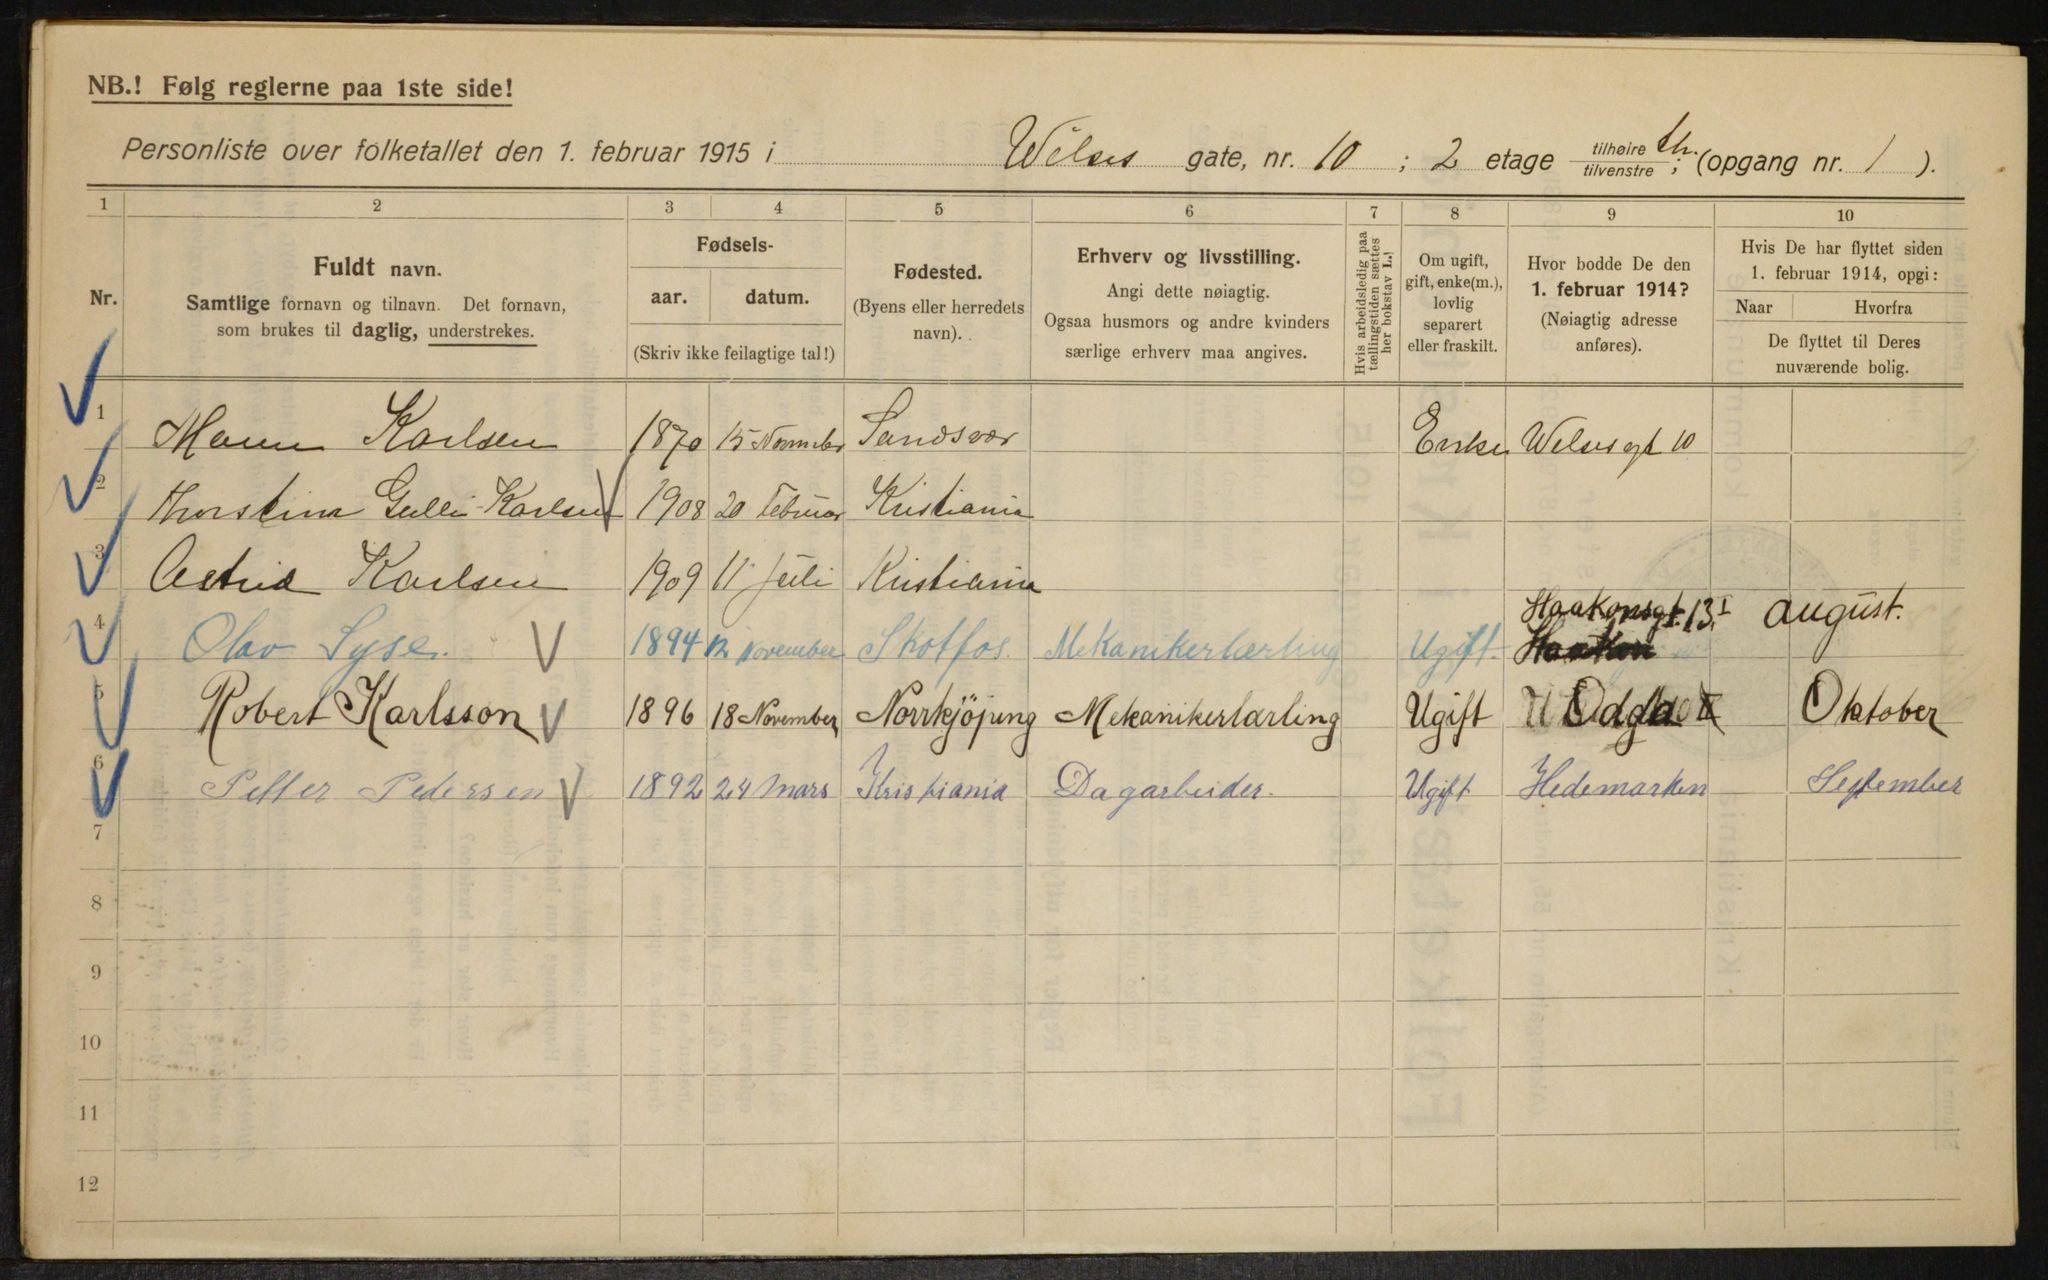 NB.! Følg reglerne paa 1ste side!
Personliste over folketallet den 1. februar 1915 i Welses gate, nr. 10 ; 2 etage tilhøire/tilvenstre th. ; (opgang nr. 1 ).
1 2 3 4 5 6 7 8 9 10
Nr.
Fuldt navn.
Samtlige fornavn og tilnavn. Det fornavn,
som brukes til daglig, understrekes.
Fødsels-
aar. datum.
(Skriv ikke feilagtige tal!)
Fødested.
(Byens eller herredets
navn).
Erhverv og livsstilling.
Angi dette nøiagtig.
Ogsaa husmors og andre kvinders
særlige erhverv maa angives.
Hvis arbeidsledig paa
tællingstiden sættes
her bokstav L.)
Om ugift,
gift, enke(m.),
lovlig
separert
eller fraskilt.
Hvor bodde De den
1. februar 1914?
(Nøiagtig adresse
anføres).
Hvis De har flyttet siden
1. februar 1914, opgi:
Naar Hvorfra
De flyttet til Deres
nuværende bolig.
1 Karlsen 1870 15 November Sandsvær Enke Welsesgt 10
2 Karlsen 1908 20 Februar Kristiania
3 Astrid Karlsen 1909 11 Juli Kristiania
4 Olav Syse. 1894 12 November Skotfos. Mekanikerlærling Ugift. Haakonsgt. 13 I august.
5 Robert Karlsson 1896 18 November Norrkjöping Mekanikerlærling Ugift Odda Oktober
6 Petter Pedersen 1892 24 Mars Kristiania Dagarbeider. Ugift Hedemarken September
7
8
9
10
11
12